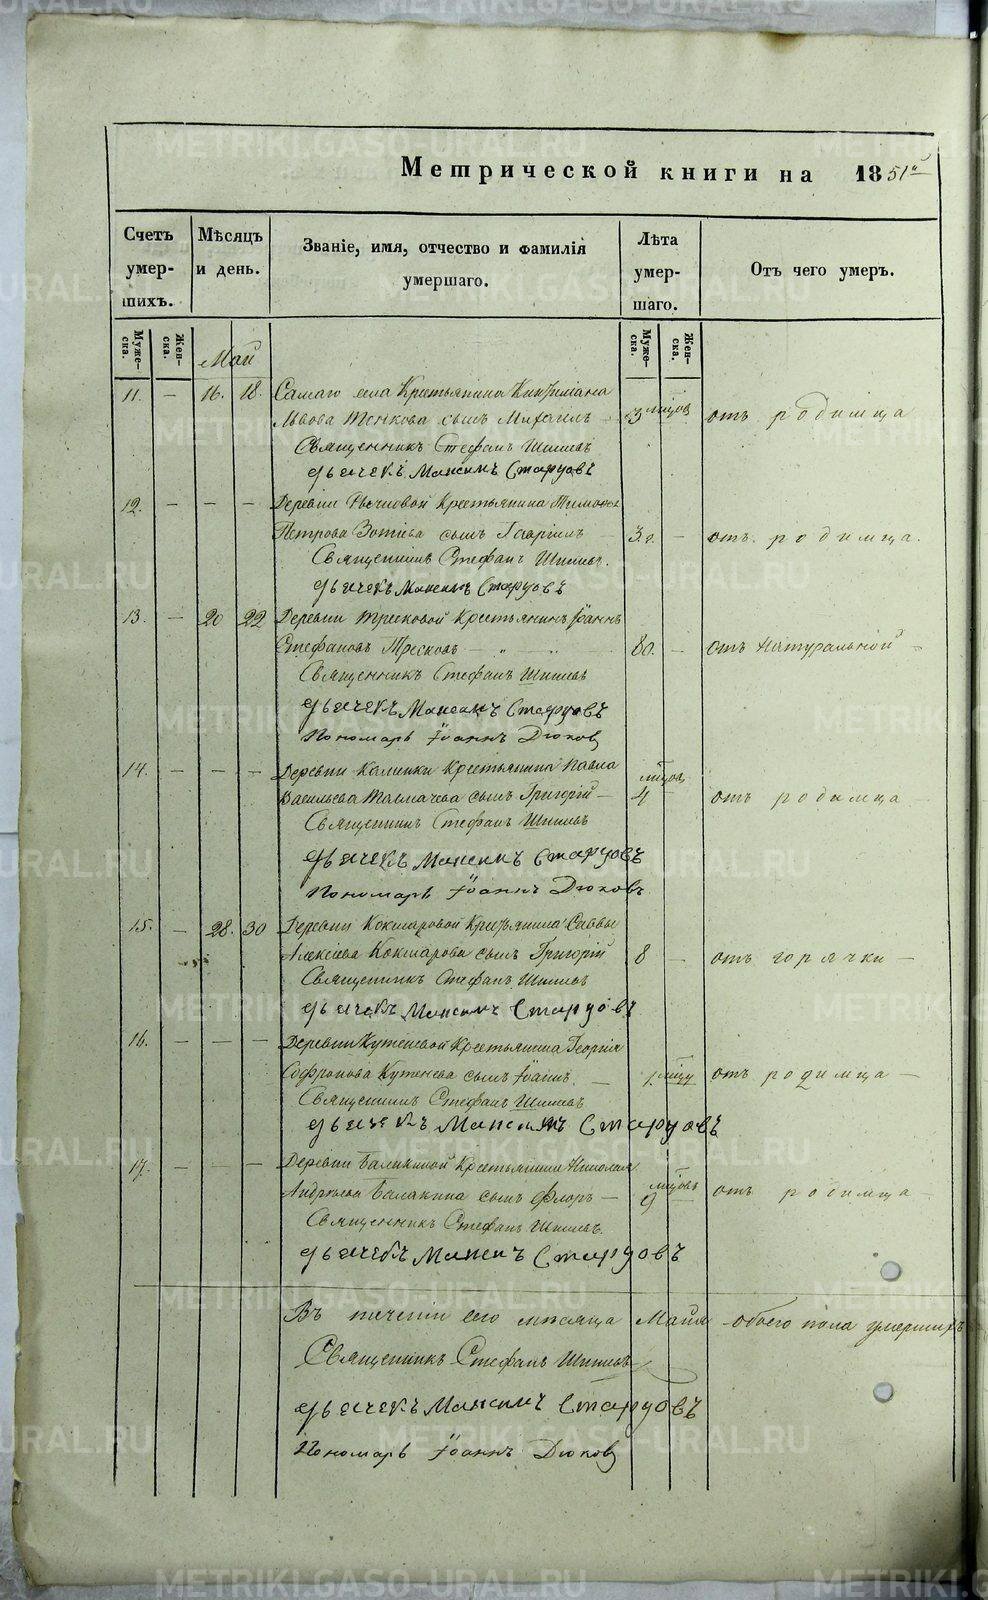 Метрической книги на 1851й
Счетъ умершихъ.
Мѣсяцъ и день.
Званіе, имя, отчество и фамилія умершаго.
Лѣта умершаго.
Отъ чего умеръ.
Муже-ска.
Жен-ска.
Муже-ска.
Жен-ска.
Май
11. — 16. 18. Самаго села Крестьянина
Львова сынъ Михаилъ — 3 мѣсцов отъ родимца
Священникъ Стефанъ Шишевъ
Дьячекъ Максимъ Старцовъ
12. — — — Деревни Крестьянина
Петрова Зотѣева сынъ Георгій — 3 г. — отъ родимца.
Священникъ Стефанъ Шишевъ.
Дьячекъ Максимъ Старцовъ
13. — 20 22 Деревни Тресковой Крестьянинъ Іоаннъ
Стефановъ Тресковъ — „ — „ — 80. — отъ натуральной —
Священникъ Стефанъ Шишевъ
Дьячекъ Максимъ Старцовъ
Пономарь Іоаннъ Дюков
14. — — — Деревни Калинки Крестьянина Павла
Васильева Толмачева сынъ Григорій — 4 мѣсцов — отъ родимца —
Священникъ Стефанъ Шишевъ
Дьячекъ Максимъ Старцовъ
Пономарь Іоаннъ Дюковъ
15. — 28. 30 Деревни Кокшаровой Крестьянина Саввы
Алексѣева Кокшарова сынъ Григорій 8 — отъ горячки —
Священникъ Стефанъ Шишевъ
Дьячекъ Максимъ Старцовъ
16. — — — Деревни Кутеневой Крестьянина Георгія
Софронова Кутенева сынъ Іоаннъ. — 1. мѣсцу отъ родимца —
Священникъ Стефанъ Шишевъ
Дьячекъ Максимъ Старцовъ
17. — — — Деревни Балакиной Крестьянина Николая
Андреева Балакина сынъ Флоръ — 9 мѣсцовъ отъ родимца —
Священникъ Стефанъ Шишевъ.
Дьячекъ Максимъ Старцовъ
Въ теченіи сего мѣсяца Майя обоего пола умершихъ
Священникъ Стефанъ Шишевъ
Дьячекъ Максимъ Старцовъ
Пономарь Іоаннъ Дюков
METRIKI.GASO-URAL.RU